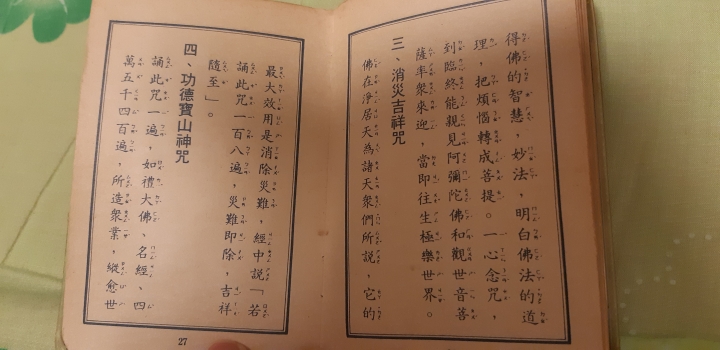 得佛的智慧，妙法，明白佛法的道
理，把煩惱轉成菩提。一心念咒，
到臨終能親見阿彌陀佛和觀世音菩
薩率衆來迎，當即往生極樂世界。
三、消災吉祥咒
佛在淨居天為諸天衆們所說，它的
最大效用是消除災難，經中說「若
誦此咒一百八遍，災難即除，吉祥
隨至」。
四、功德寶山神咒
誦此咒一遍，如禮大佛、名經、四
萬五千四百遍，所造衆業，縱愈世
27